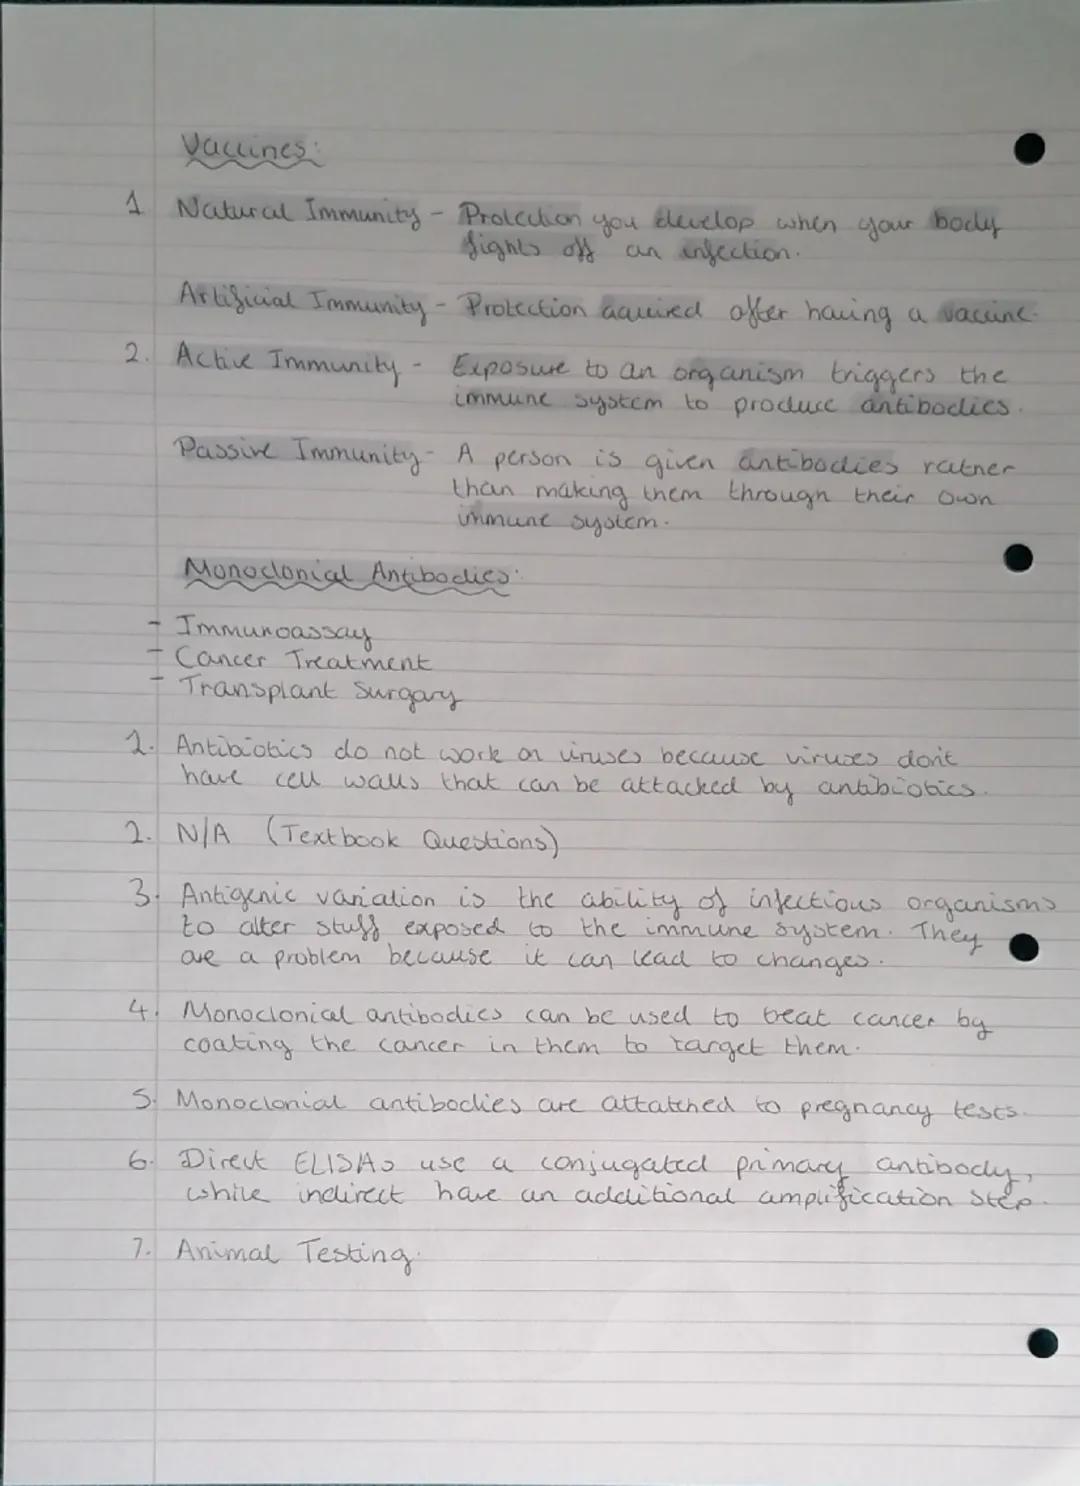 Vaccines:
1 Natural Immunity - Protection you develop when your body
fights off an infection.
Artificial Immunity - Protection aquired after having a vaccine.
2. Active Immunity - Exposure to an organism triggers the
immune system to produce antibodies.
Passive Immunity - A person is given antibodies rather
than making them through their own
immune system.
Monoclonial Antibodies:
- Immunoassay
- Cancer Treatment
- Transplant Surgary
1. Antibiotics do not work on viruses because viruses don't
have cell walls that can be attacked by antibiotics.
2. N/A (Textbook Questions)
3. Antigenic variation is the ability of infectious organisms
to alter stuff exposed to the immune system. They
are a problem because it can lead to changes.
4. Monoclonial antibodies can be used to treat cancer by
coating the cancer in them to target them.
5. Monoclonial antibodies are attatched to pregnancy tests.
6. Direct ELISAs use a conjugated primary antibody,
while indirect have an additional amplification step.
7. Animal Testing.